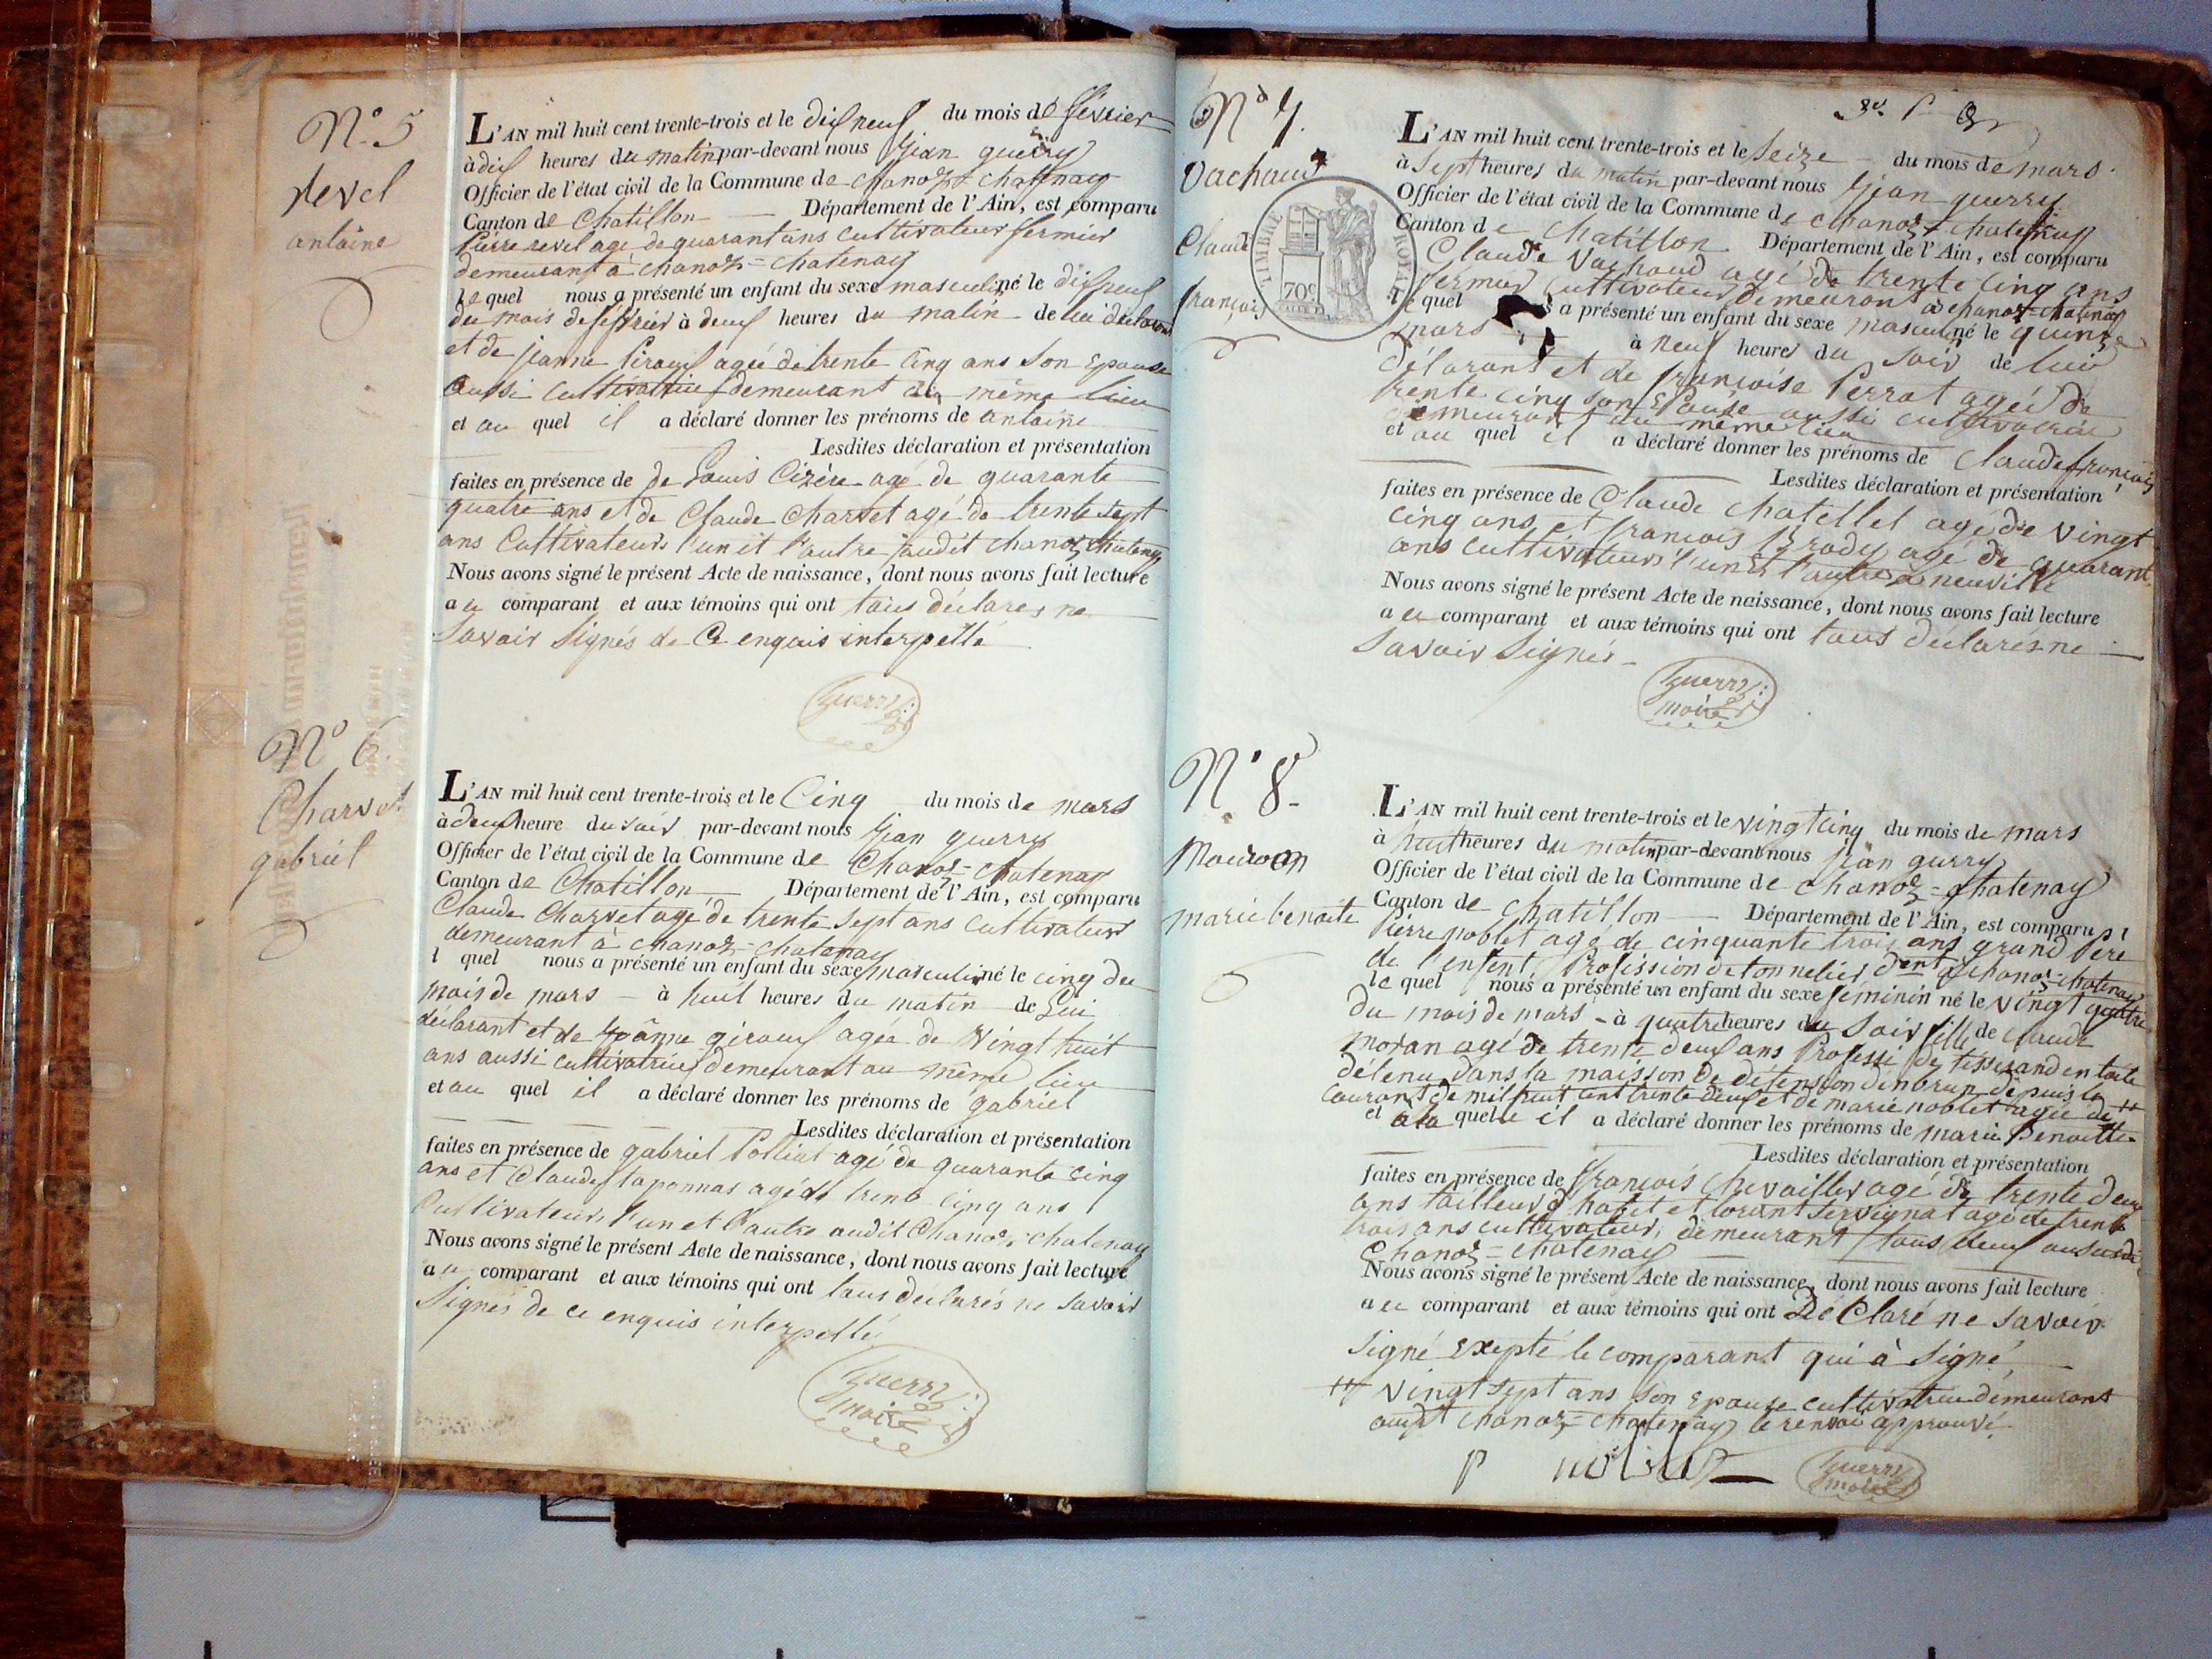 N.º 5
revel
antoine
L'AN mil huit cent trente-trois et le dix neuf du mois de février
à dix heures du matin par-devant nous jean guerry
Officier de l'état civil de la Commune de chanoz = chatenay
Canton de Chatillon Département de l'Ain, est comparu
Pierre revel age de quarant ans cultivateur fermier
demeurant à chanoz = chatenay
le quel nous a présenté un enfant du sexe masculin né le dix neuf
du mois de février à deux heures du matin de lui déclarant
et de jeanne Giroux agée de trente cinq ans son Epouse
aussi cultivatrice demeurant au même lieu
et au quel il a déclaré donner les prénoms de antoine
Lesdites déclaration et présentation
faites en présence de de Louis Cizère agé de quarante
quatre ans et de Claude Charvet agé de trente sept
ans Cultivateurs l'un et l'autre audit chanoz chatenay
Nous avons signé le présent Acte de naissance, dont nous avons fait lecture
au comparant et aux témoins qui ont tous déclarés ne
Savoir Signés de Ce enquis interpellé
Guerry
N.º 6.
Charvet
gabriel
L'AN mil huit cent trente-trois et le Cinq du mois de mars
à deux heure du soir par-devant nous jean guerry
Officier de l'état civil de la Commune de Chanoz = chatenay
Canton de Chatillon Département de l'Ain, est comparu
Claude Charvet agé de trente sept ans cultivateur
demeurant à chanoz = chatenay
l quel nous a présenté un enfant du sexe masculin né le cinq du
mois de mars à huit heures du matin de Lui
déclarant et de jeanne giroux agée de Vingt huit
ans aussi cultivatrice demeurant au même lieu
et au quel il a déclaré donner les prénoms de gabriel
Lesdites déclaration et présentation
faites en présence de gabriel Polliat agé de quarante cinq
ans et Claude taponnas agé de trente cinq ans
Cultivateurs l'un et l'autre audit Chanoz chatenay
Nous avons signé le présent Acte de naissance, dont nous avons fait lecture
au comparant et aux témoins qui ont tous declarés ne savoir
Signés de ce enquis interpellé
Guerry
maire
Nº 7.
Vachaud
Claude
françois
TIMBRE ROYAL
70c
L'AN mil huit cent trente-trois et le Seize du mois de mars
à Sept heures du matin par-devant nous jean guerry
Officier de l'état civil de la Commune de chanoz = chatenay
Canton de Chatillon Département de l'Ain, est comparu
Claude Vachaud agé de trente cinq ans
fermier cultivateur demeurant à chanoz = chatenay
le quel s a présenté un enfant du sexe masculin né le quinze
mars à neuf heures du soir de lui
déclarant et de françoise Perrat agée de
trente cinq son Epouse aussi cultivatrice
demeurant au même lieu
et au quel il a déclaré donner les prénoms de Claude françois
Lesdites déclaration et présentation
faites en présence de Claude Chatellet agé de vingt
cinq ans et francois Brady agé de quarant
ans cultivateurs l'un et l'autre a neuville
Nous avons signé le présent Acte de naissance, dont nous avons fait lecture
au comparant et aux témoins qui ont tous declarés ne
Savoir Signés
Guerry
maire
N.º 8.
marie benoite
L'AN mil huit cent trente-trois et le vingt cinq du mois de mars
à huit heures du matin par-devant nous jean gurry
Officier de l'état civil de la Commune de chanoz = chatenay
Canton de chatillon Département de l'Ain, est comparu
Pierre noblet agé de cinquante trois ans grand Père
de l'enfent Profission de tonnelier dent a chanoz = chatenay
le quel nous a présenté un enfant du sexe féminin né le vingt quatre
du mois de mars à quatre heures du Soir fille de Claude
moran agé de trente deux ans Professi de tisserand en toile
detenu dans la maisson de détension denbrun depuis le
courant de mil huit cent trente deux et de marie noblet agée de #
et a la quelle il a déclaré donner les prénoms de marie Benoitte
Lesdites déclaration et présentation
faites en présence de françois Chevaillier agé de trente deux
ans tailleur d'habit et lorent Servignat agé de trente
trois ans cultivateur, demeurant tous deux au susdit
Chanoz = chatenay
Nous avons signé le présent Acte de naissance, dont nous avons fait lecture
au comparant et aux témoins qui ont De Claré ne savoir
Signé Exepté le comparant qui à Signé
# vingt sept ans son Epouse cultivatrice demeurant
audit chanoz = chatenay le renvoi approuvé
P noblet
Guerry
maire